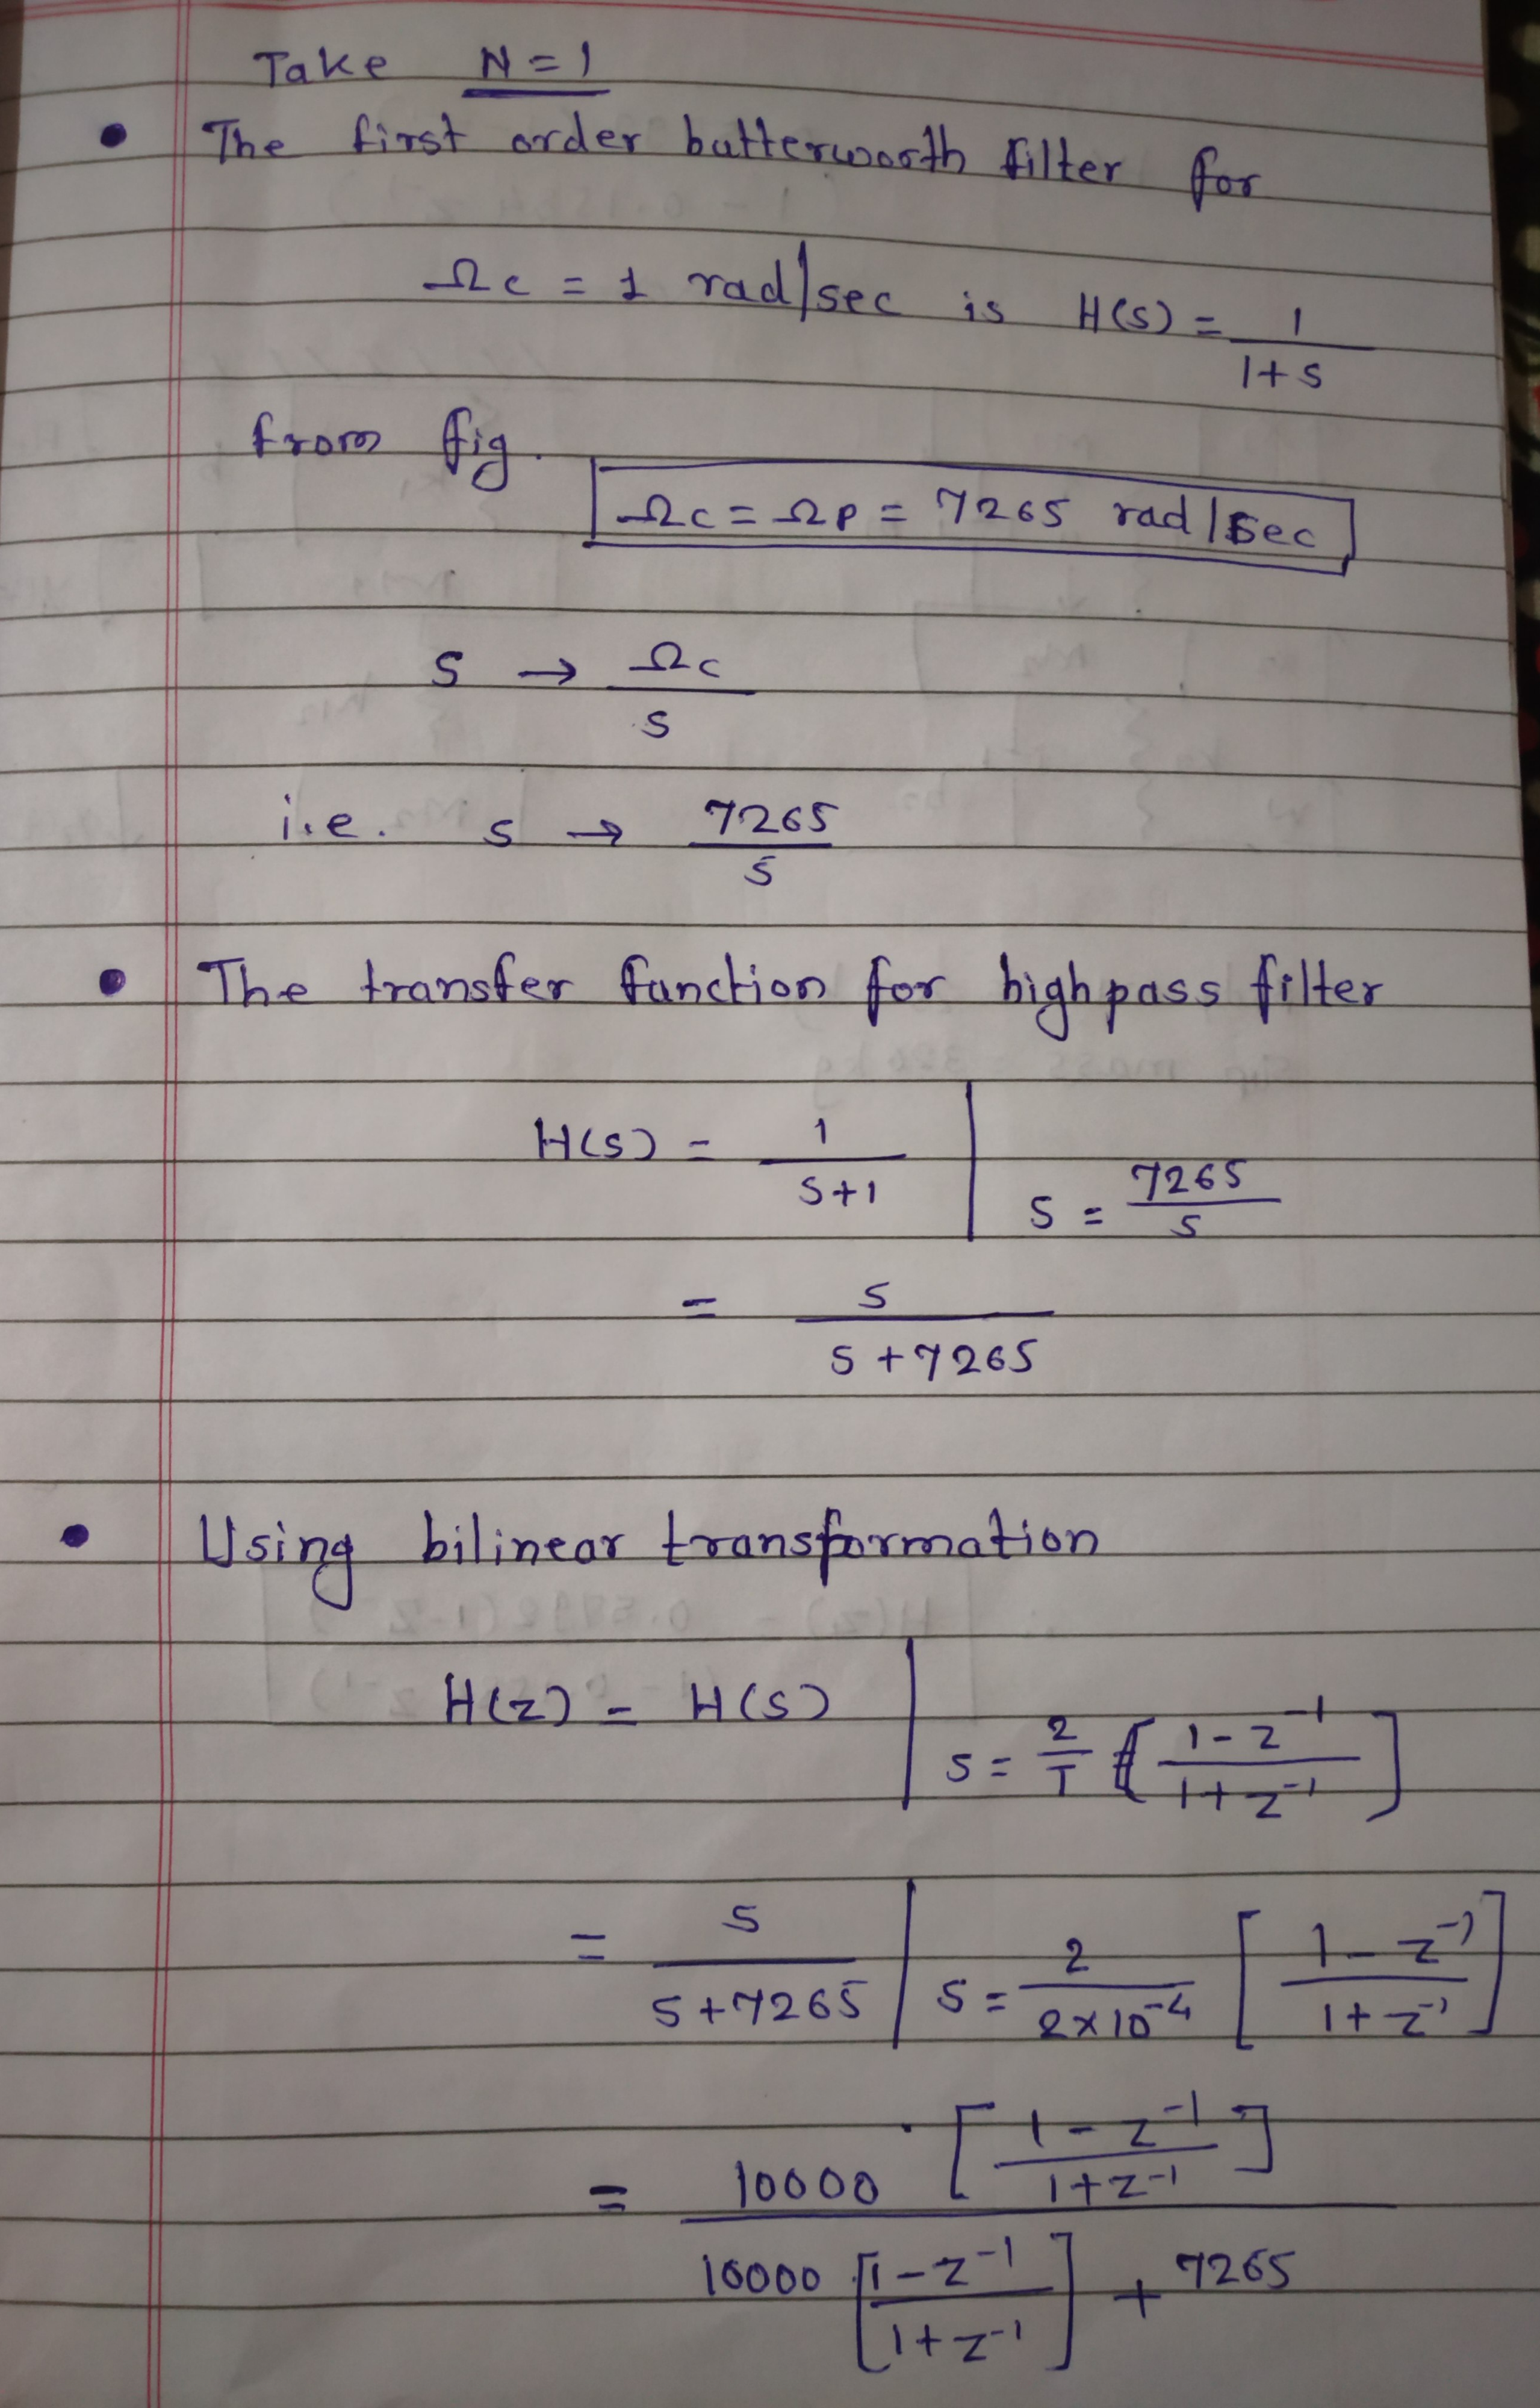 Take N = 1
• The first order butterworth filter for
Ωc = 1 rad/sec is H(s) = 1 / 1+s
from fig.
Ωc = Ωp = 7265 rad/sec
s → Ωc / s
i.e. s → 7265 / s
• The transfer function for highpass filter
H(s) = 1 / s+1 | s = 7265 / s
= s / s+7265
• Using bilinear transformation
H(z) = H(s) | s = 2/T [ 1-z⁻¹ / 1+z⁻¹ ]
= s / s+7265 | s = 2 / 2×10⁻⁴ [ 1-z⁻¹ / 1+z⁻¹ ]
= 10000 [ 1-z⁻¹ / 1+z⁻¹ ]
10000 [ 1-z⁻¹ / 1+z⁻¹ ] + 7265